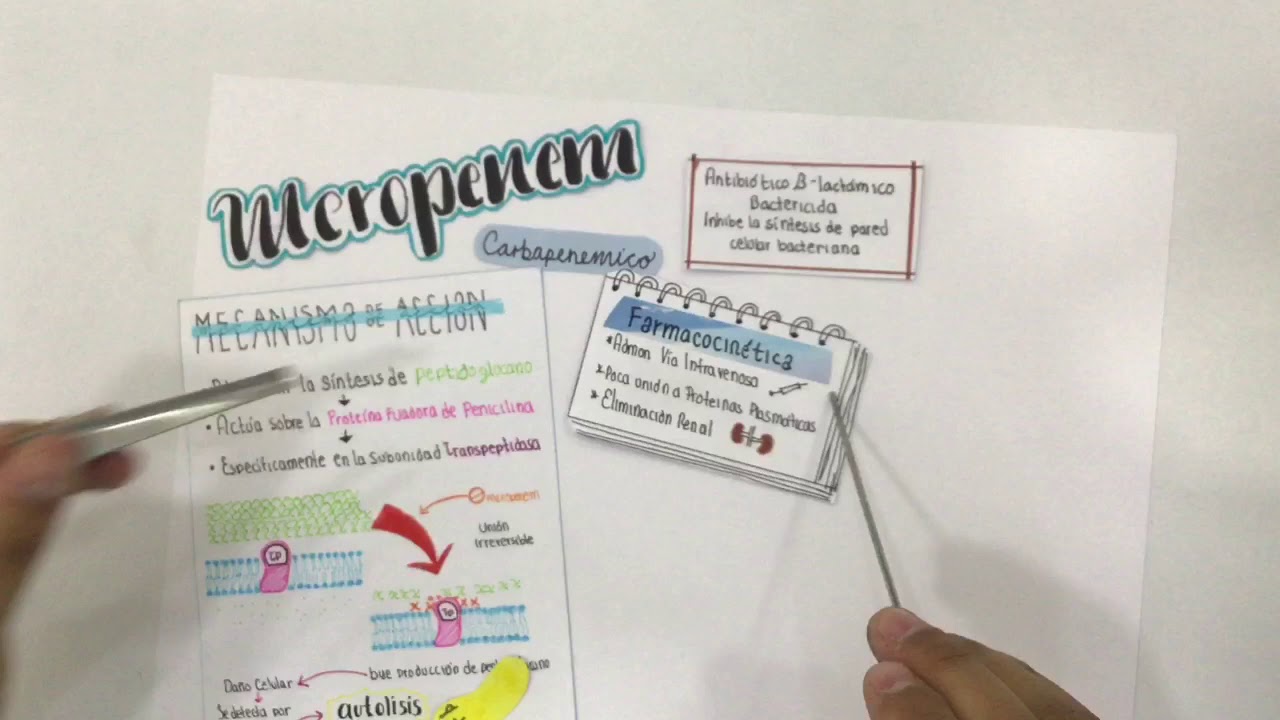 Meropenem
Carbapenemico
Antibiótico B-lactámico
Bactericida
Inhibe la síntesis de pared
celular bacteriana
MECANISMO DE ACCION
la síntesis de peptidoglocano
• Actúa sobre la Proteína Fijadora de Penicilina
• Específicamente en la subonidad Transpeptidasa
Unión
irreversible
Daño Celular
producción de
Se detecta por
autolisis
Farmacocinética
*Admon Vía Intravenosa
*Poca unión a Proteínas Plasmáticas
*Eliminación Renal